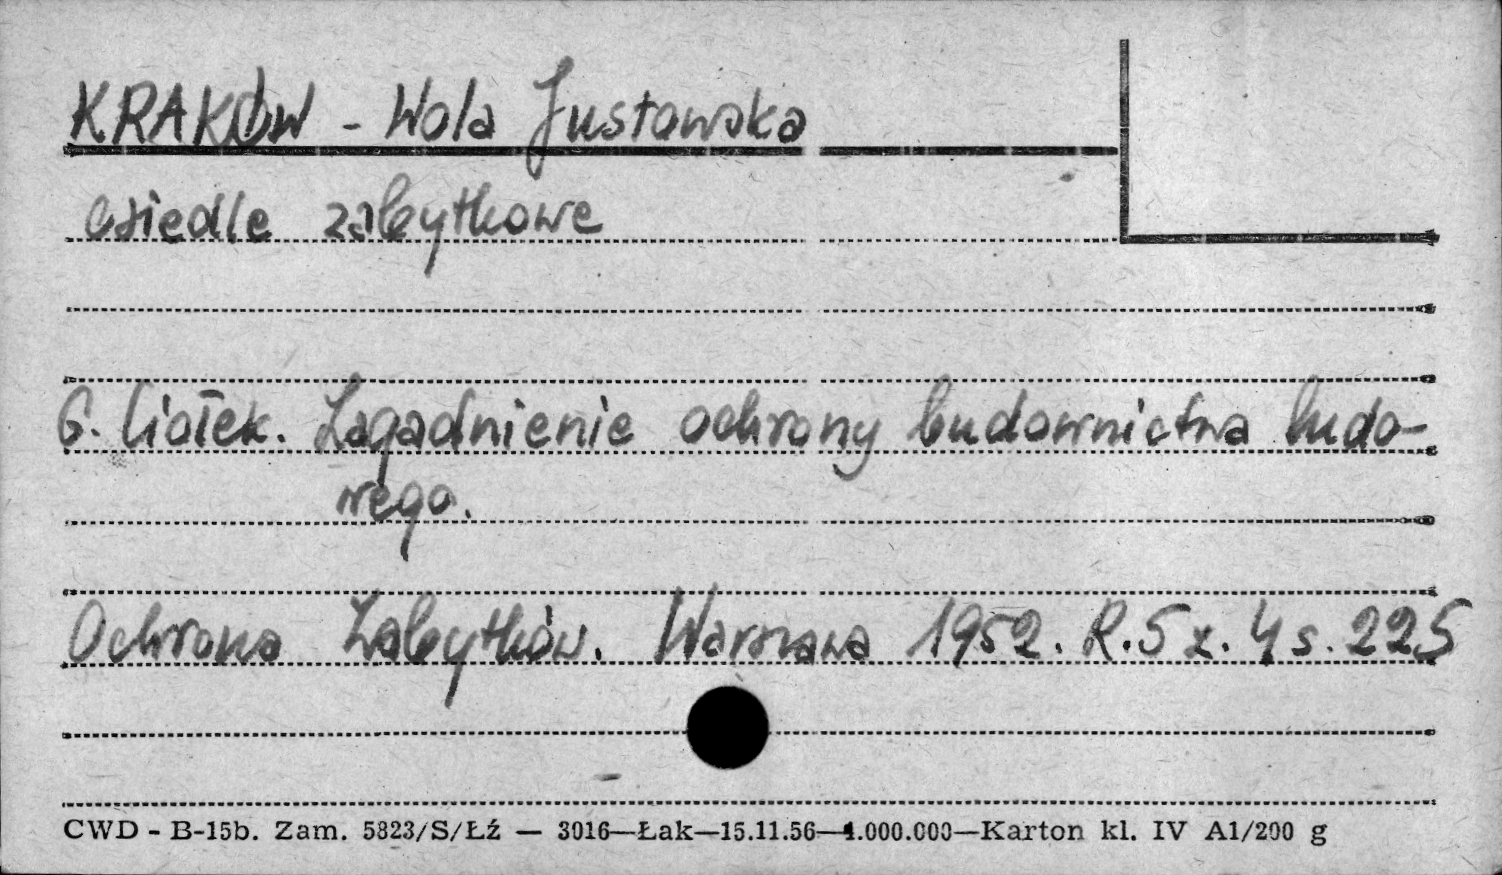 KRAKÓW - Wola Justowska
osiedle zabytkowe
G. Ciołek. Zagadnienie ochrony budownictwa ludo-
wego.
Ochrona Zabytków. Warszawa 1952. R.5 z. 4 s. 225
CWD - B-15b. Zam. 5823/S/Łź — 3016—Łak—15.11.56—1.000.000—Karton kl. IV A1/200 g